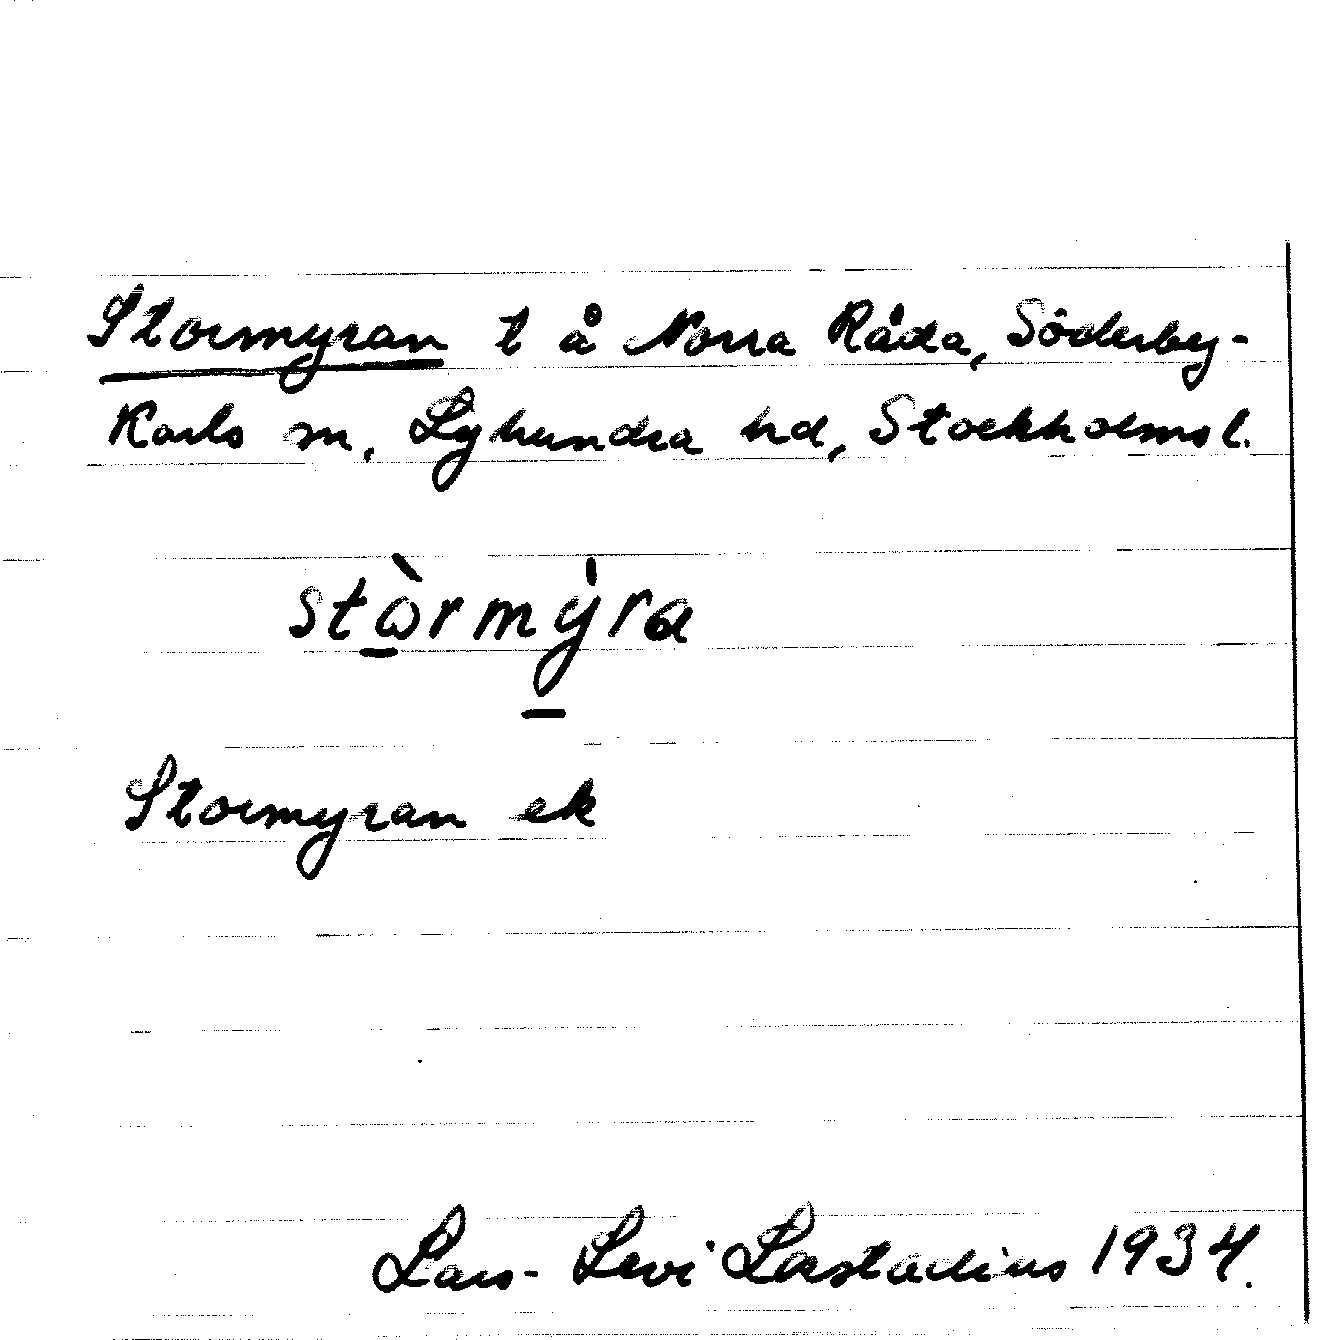 Stormyran t å Norra Råda, Söderby-
Karls sn, Lyhundra hd, Stockholms l.
stɷ̠̀rmy̠̍ra
Stormyran ek
Lars-Levi Læstadius 1934.